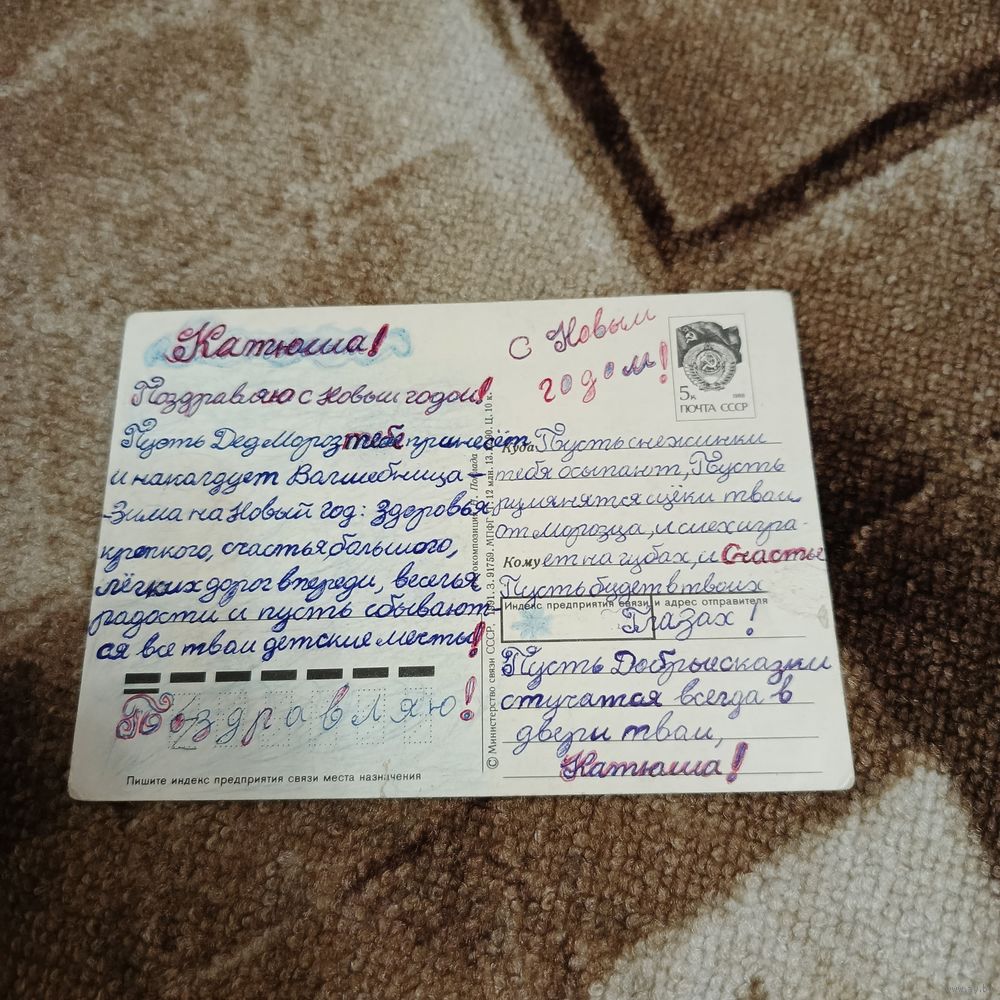 Катюша!
Поздравляю с Новым годом!
Пусть Дед Мороз тебе принесёт
и наколдует Волшебница-
-Зима на Новый год: Здоровья
крепкого, счастья большого,
лёгких дорог впереди, веселья
радости и пусть сбывают-
ся все твои детские мечты!
Поздравляю!
Пишите индекс предприятия связи места назначения
© Министерство связи СССР, 1991. З. 91759. МПФГ
12 млн. 13.
Ц. 10 к.
С Новым
годом!
5к 1988
ПОЧТА СССР
Куда Пусть снежинки
тебя осыпают, Пусть
румянятся щёки твои
от морозца, и смех игра-
Кому ет на губах, и Счастье
Пусть будет в твоих
Индекс предприятия связи и адрес отправителя
Глазах!
Пусть Добрые сказки
стучатся всегда в
двери твои,
Катюша!